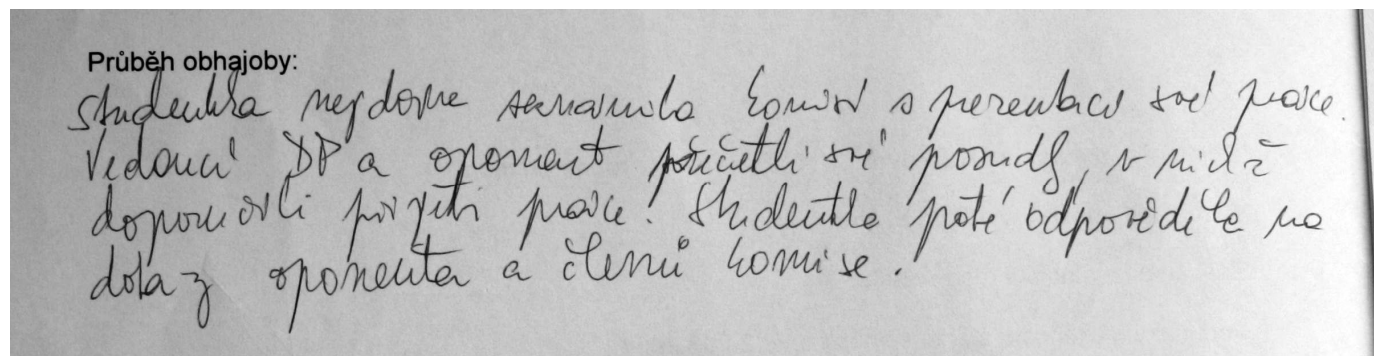 Průběh obhajoby:
Studentka nejdříve seznámila komisi s prezentací své práce.
Vedoucí DP a oponent přečetli své posudky, v nichž
doporučili přijetí práce. Studentka poté odpověděla na
dotaz oponenta a členů komise.